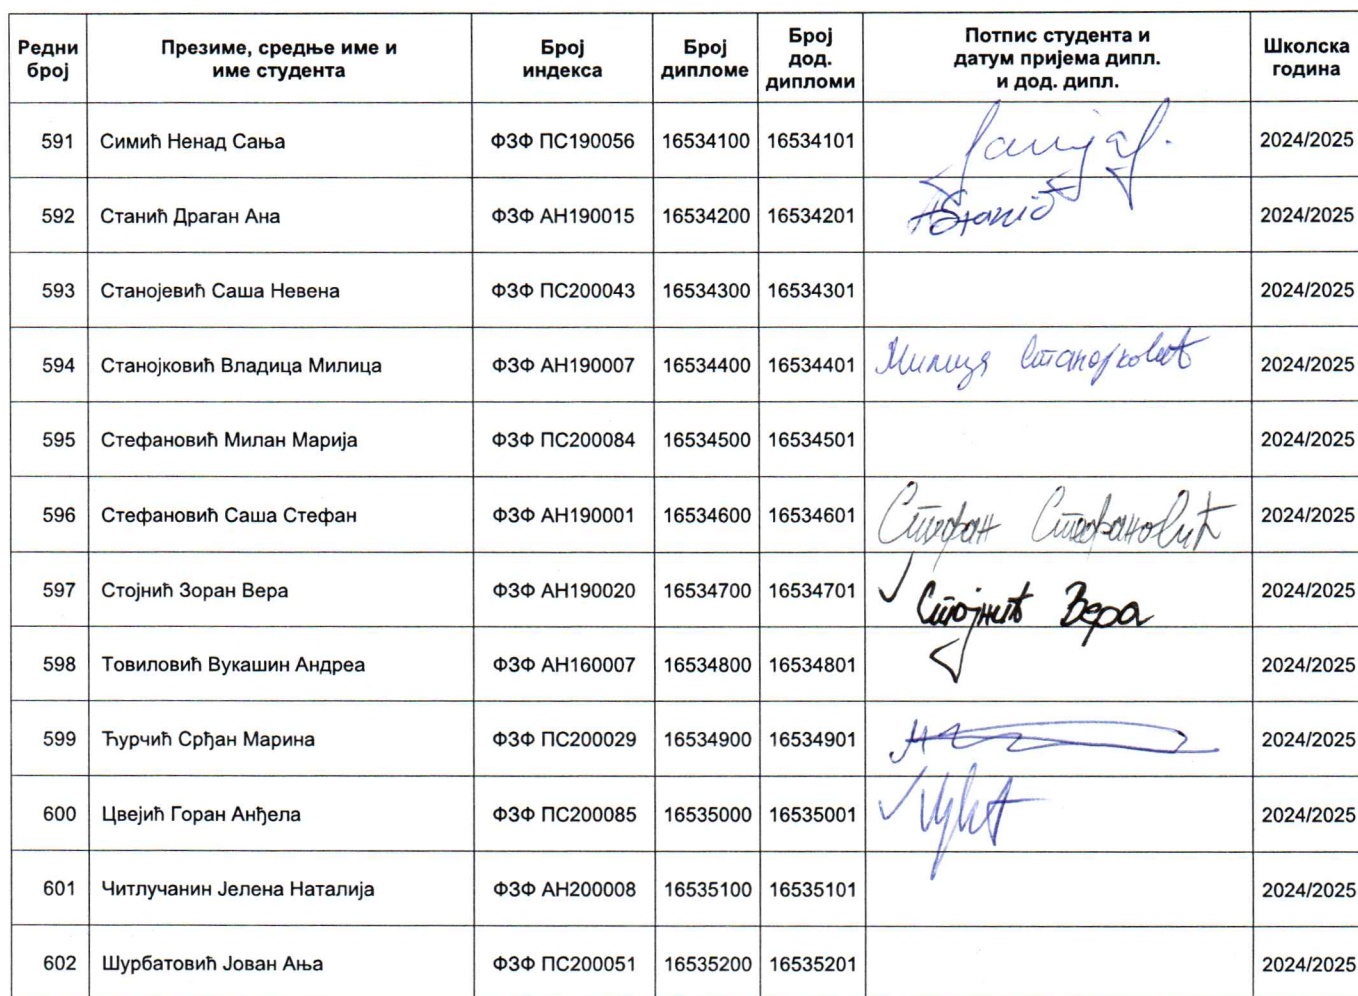 Редни број Презиме, средње име и име студента Број индекса Број дипломе Број дод. дипломи Потпис студента и датум пријема дипл. и дод. дипл. Школска година
591 Симић Ненад Сања ФЗФ ПС190056 16534100 16534101 2024/2025
592 Станић Драган Ана ФЗФ АН190015 16534200 16534201 2024/2025
593 Станојевић Саша Невена ФЗФ ПС200043 16534300 16534301 2024/2025
594 Станојковић Владица Милица ФЗФ АН190007 16534400 16534401 Милица Станојковић 2024/2025
595 Стефановић Милан Марија ФЗФ ПС200084 16534500 16534501 2024/2025
596 Стефановић Саша Стефан ФЗФ АН190001 16534600 16534601 Стефан Стефановић 2024/2025
597 Стојнић Зоран Вера ФЗФ АН190020 16534700 16534701 Стојнић Вера 2024/2025
598 Товиловић Вукашин Андреа ФЗФ АН160007 16534800 16534801 2024/2025
599 Ћурчић Срђан Марина ФЗФ ПС200029 16534900 16534901 2024/2025
600 Цвејић Горан Анђела ФЗФ ПС200085 16535000 16535001 2024/2025
601 Читлучанин Јелена Наталија ФЗФ АН200008 16535100 16535101 2024/2025
602 Шурбатовић Јован Ања ФЗФ ПС200051 16535200 16535201 2024/2025